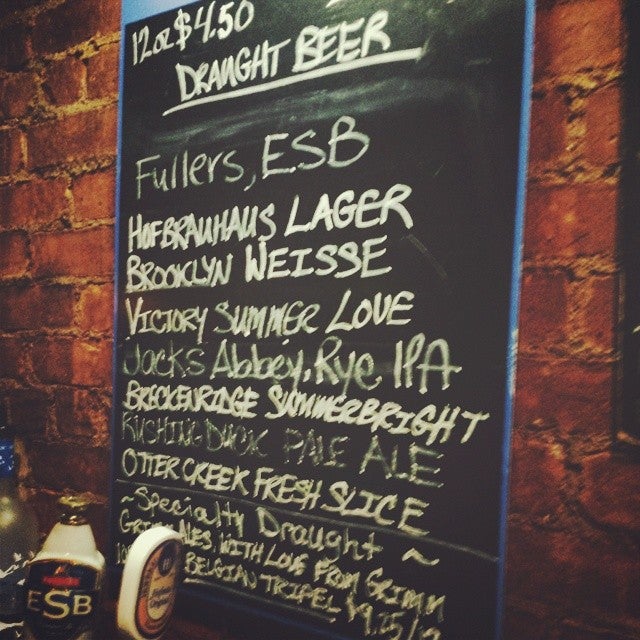 12oz $4.50
DRAUGHT BEER
Fullers, ESB
HOFBRAUHAUS LAGER
BROOKLYN WEISSE
VICTORY SUMMER LOVE
Jacks Abbey, Rye IPA
BRECKENRIDGE SUMMERBRIGHT
KUSHING DUCK PALE ALE
OTTER CREEK FRESH SLICE
~Specialty Draught~
ALES WITH LOVE FROM GRIMM
BELGIAN TRIPEL
ESB